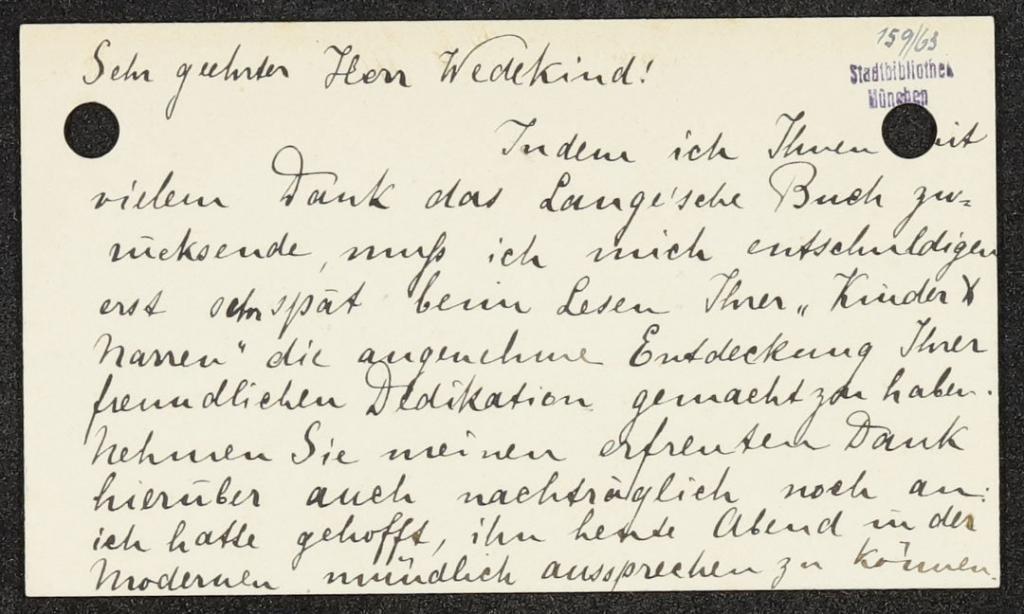 159/63
Stadtbibliothek
München
Sehr geehrter Herr Wedekind!
Indem ich Ihnen mit
vielem Dank das Lange'sche Buch zu=
rücksende, muß ich mich entschuldigen
erst sehr spät beim Lesen Ihrer „Kinder &
Narren" die angenehme Entdeckung Ihrer
freundlichen Dedikation gemacht zu haben.
Nehmen Sie meinen erfreuten Dank
hierüber auch nachträglich noch an:
ich hatte gehofft, ihn heute Abend in der
Modernen mündlich aussprechen zu können.